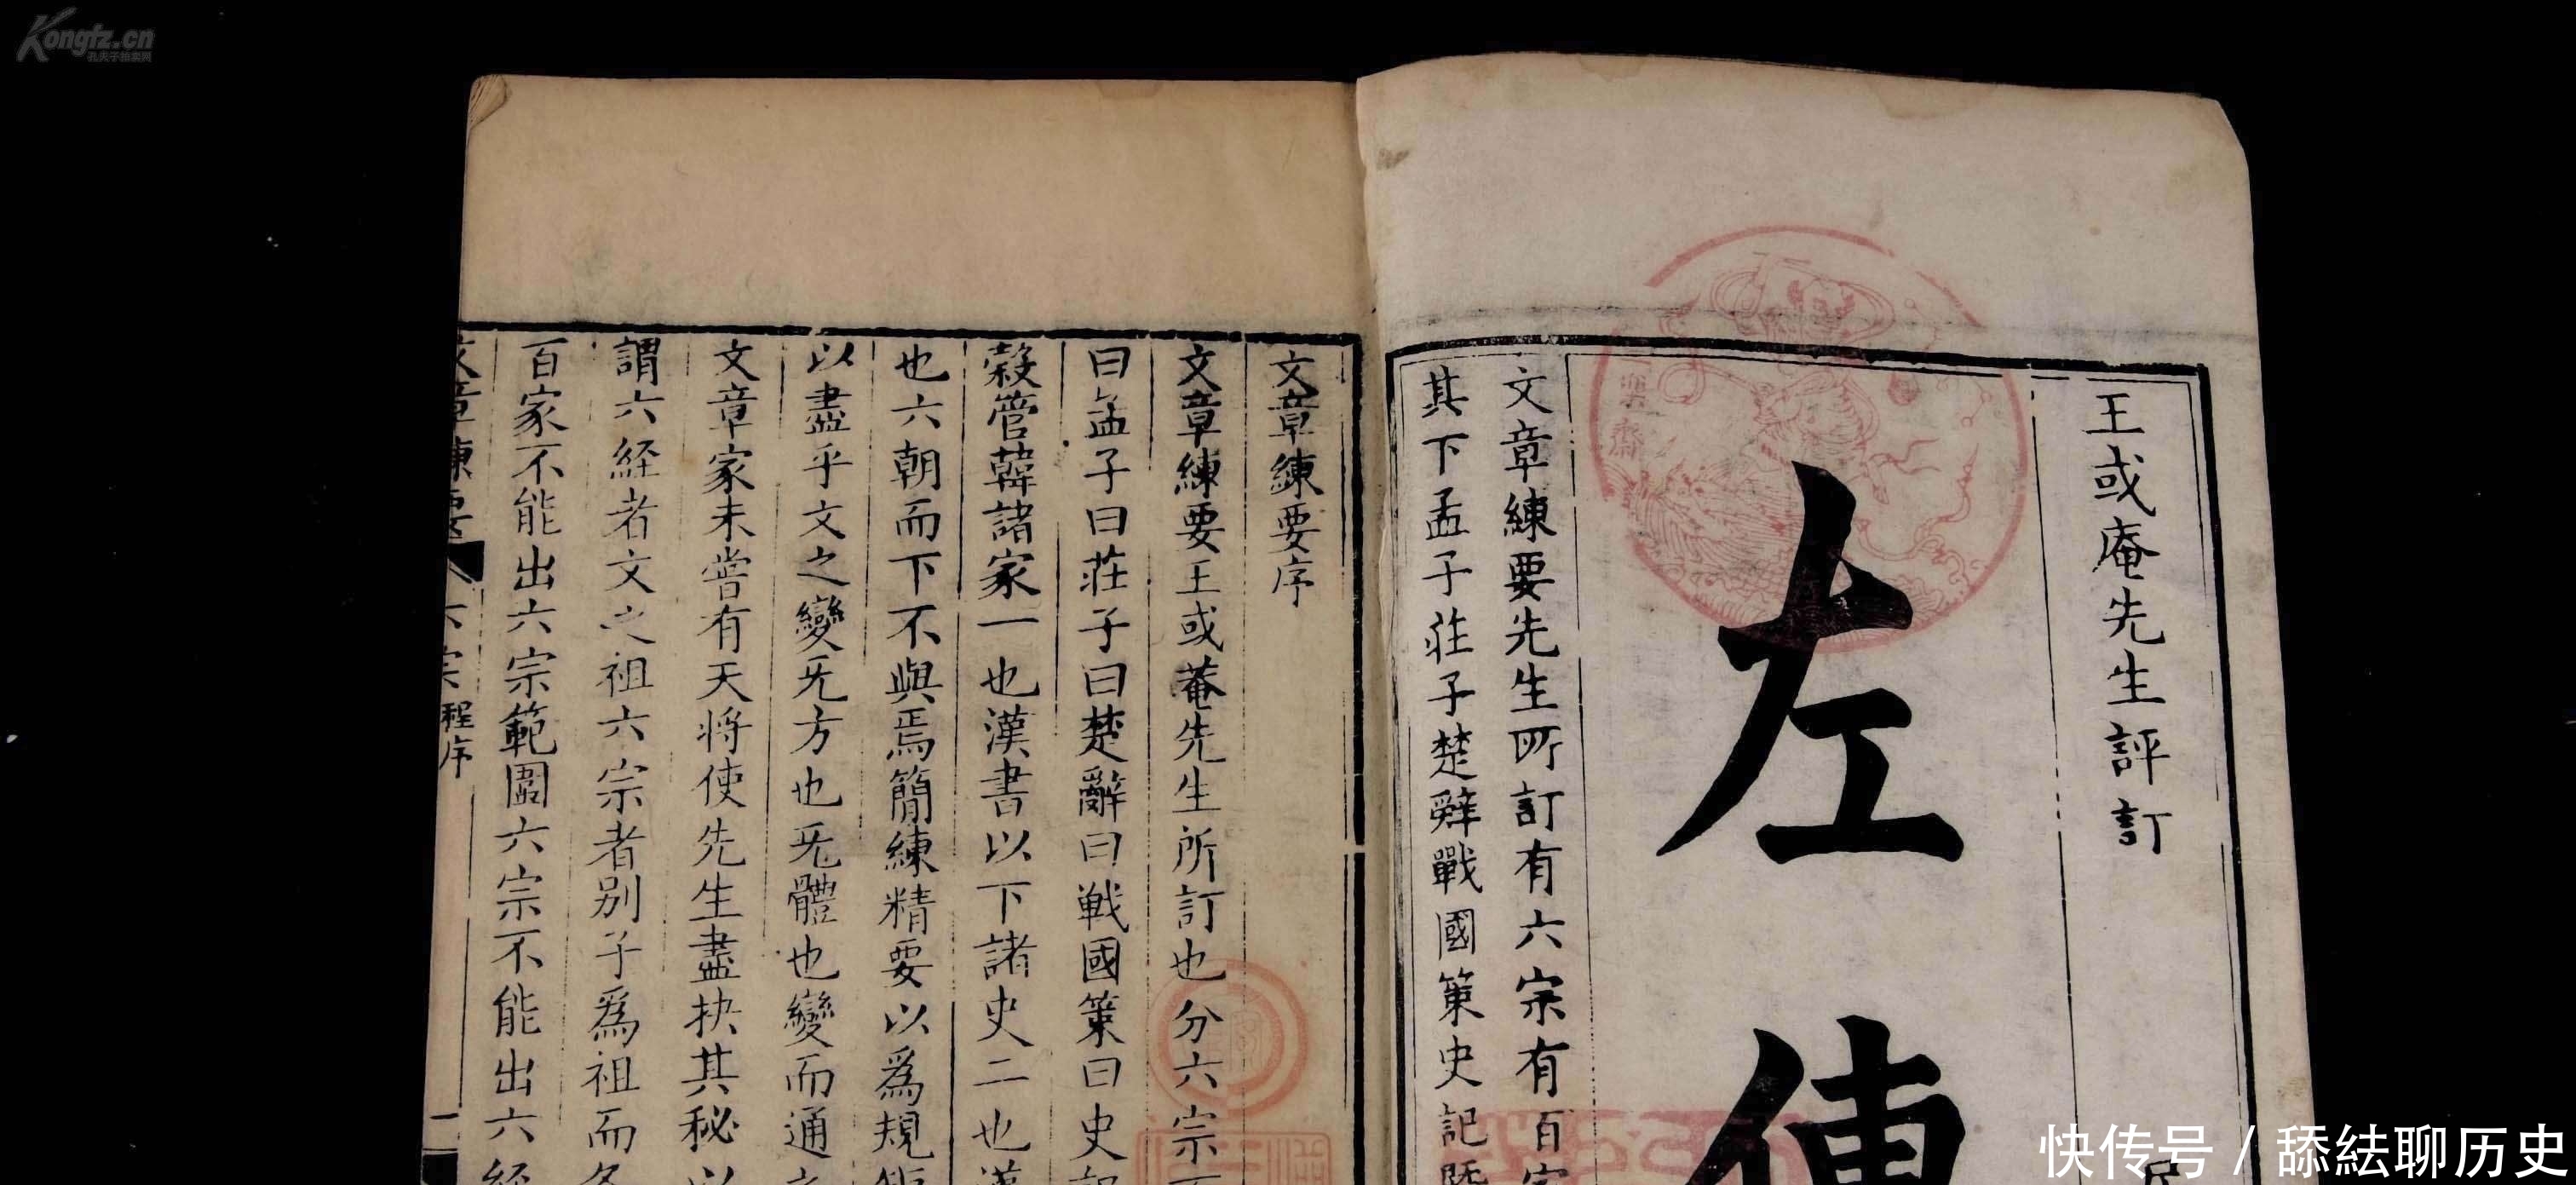 Kongfz.cn
孔夫子拍卖网
王或庵先生評訂
左傳
文章練要先生所訂有六宗有百家
其下孟子莊子楚辭戰國策史記
文章練要序
文章練要王或菴先生所訂也分六宗
曰孟子曰莊子曰楚辭曰戰國策曰史記
榖管韓諸家一也漢書以下諸史二也漢
也六朝而下不與焉簡練精要以爲規
以盡乎文之變旡方也旡體也變而通
文章家未嘗有天將使先生盡抉其秘以
謂六経者文之祖六宗者别子爲祖而
百家不能出六宗範圍六宗不能出六経
文章練要 六宗 程序 一
快传号 / 舔紶聊历史